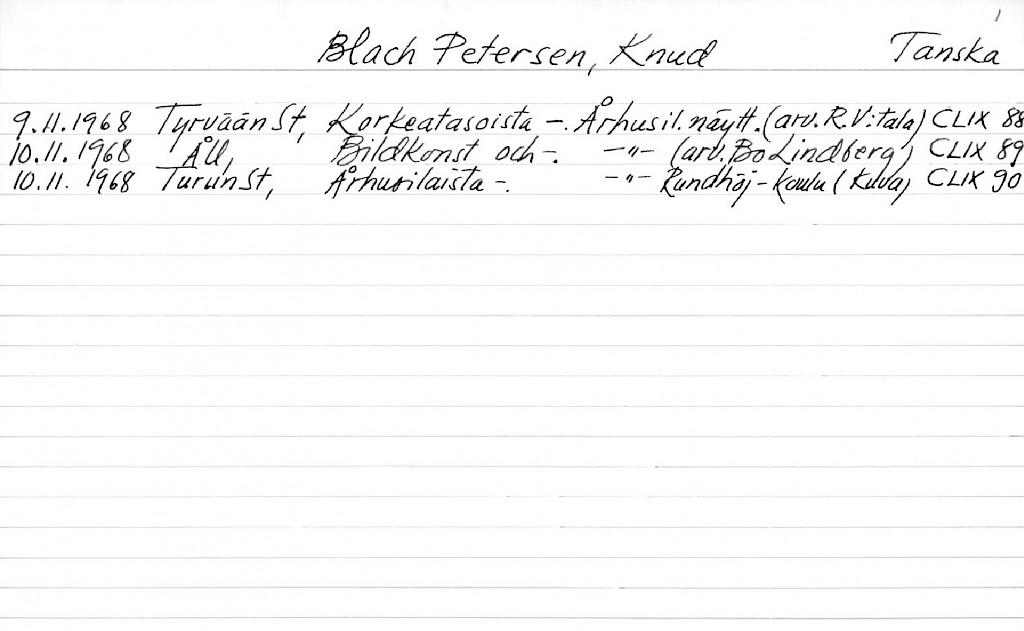 1
Blach Petersen, Knud Tanska
9.11.1968 Tyrvään St, Korkeatasoista -. Århusil. näytt. (arv. R.V:tala) CLIX 88
10.11.1968 ÅU, Bildkonst och -. -"- (arv. Bo Lindberg) CLIX 89
10.11.1968 Turun St, Århusilaista -. -"- Rundhöj-koulu (kuva) CLIX 90